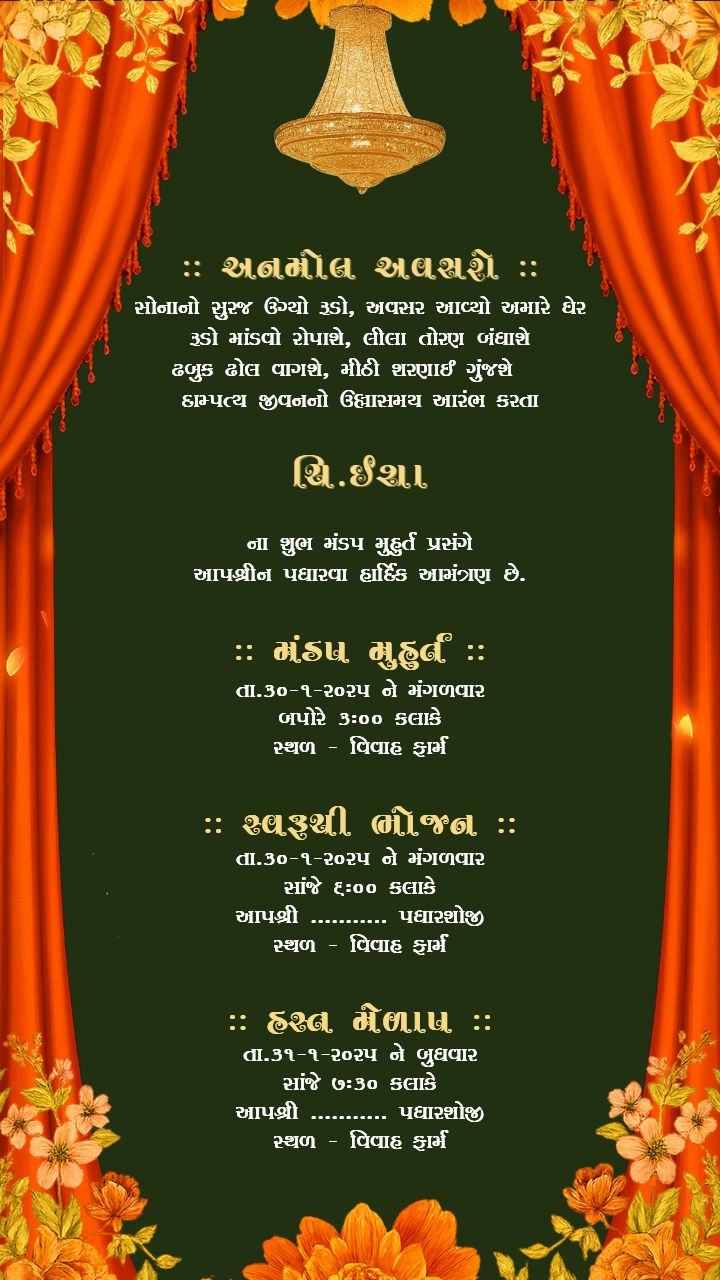 :: અનમોલ અવસરો ::
સોનાનો સુરજ ઉગ્યો રૂડો, અવસર આવ્યો અમારે ઘેર
રૂડો માંડવો રોપાશે, લીલા તોરણ બંધાશે
ઢબુક ઢોલ વાગશે, મીઠી શરણાઈ ગુંજશે
દામ્પત્ય જીવનનો ઉલ્લાસમય આરંભ કરતા
ચિ.ઈશા
ના શુભ મંડપ મુહુર્ત પ્રસંગે
આપશ્રીન પધારવા હાર્દિક આમંત્રણ છે.
:: મંડપ મુહુર્ત ::
તા.૩૦-૧-૨૦૨૫ ને મંગળવાર
બપોરે ૩:૦૦ કલાકે
સ્થળ - વિવાહ ફાર્મ
:: સ્વરૂચી ભોજન ::
તા.૩૦-૧-૨૦૨૫ ને મંગળવાર
સાંજે ૬:૦૦ કલાકે
આપશ્રી ........... પધારશોજી
સ્થળ - વિવાહ ફાર્મ
:: હસ્ત મેળાપ ::
તા.૩૧-૧-૨૦૨૫ ને બુધવાર
સાંજે ૭:૩૦ કલાકે
આપશ્રી ........... પધારશોજી
સ્થળ - વિવાહ ફાર્મ